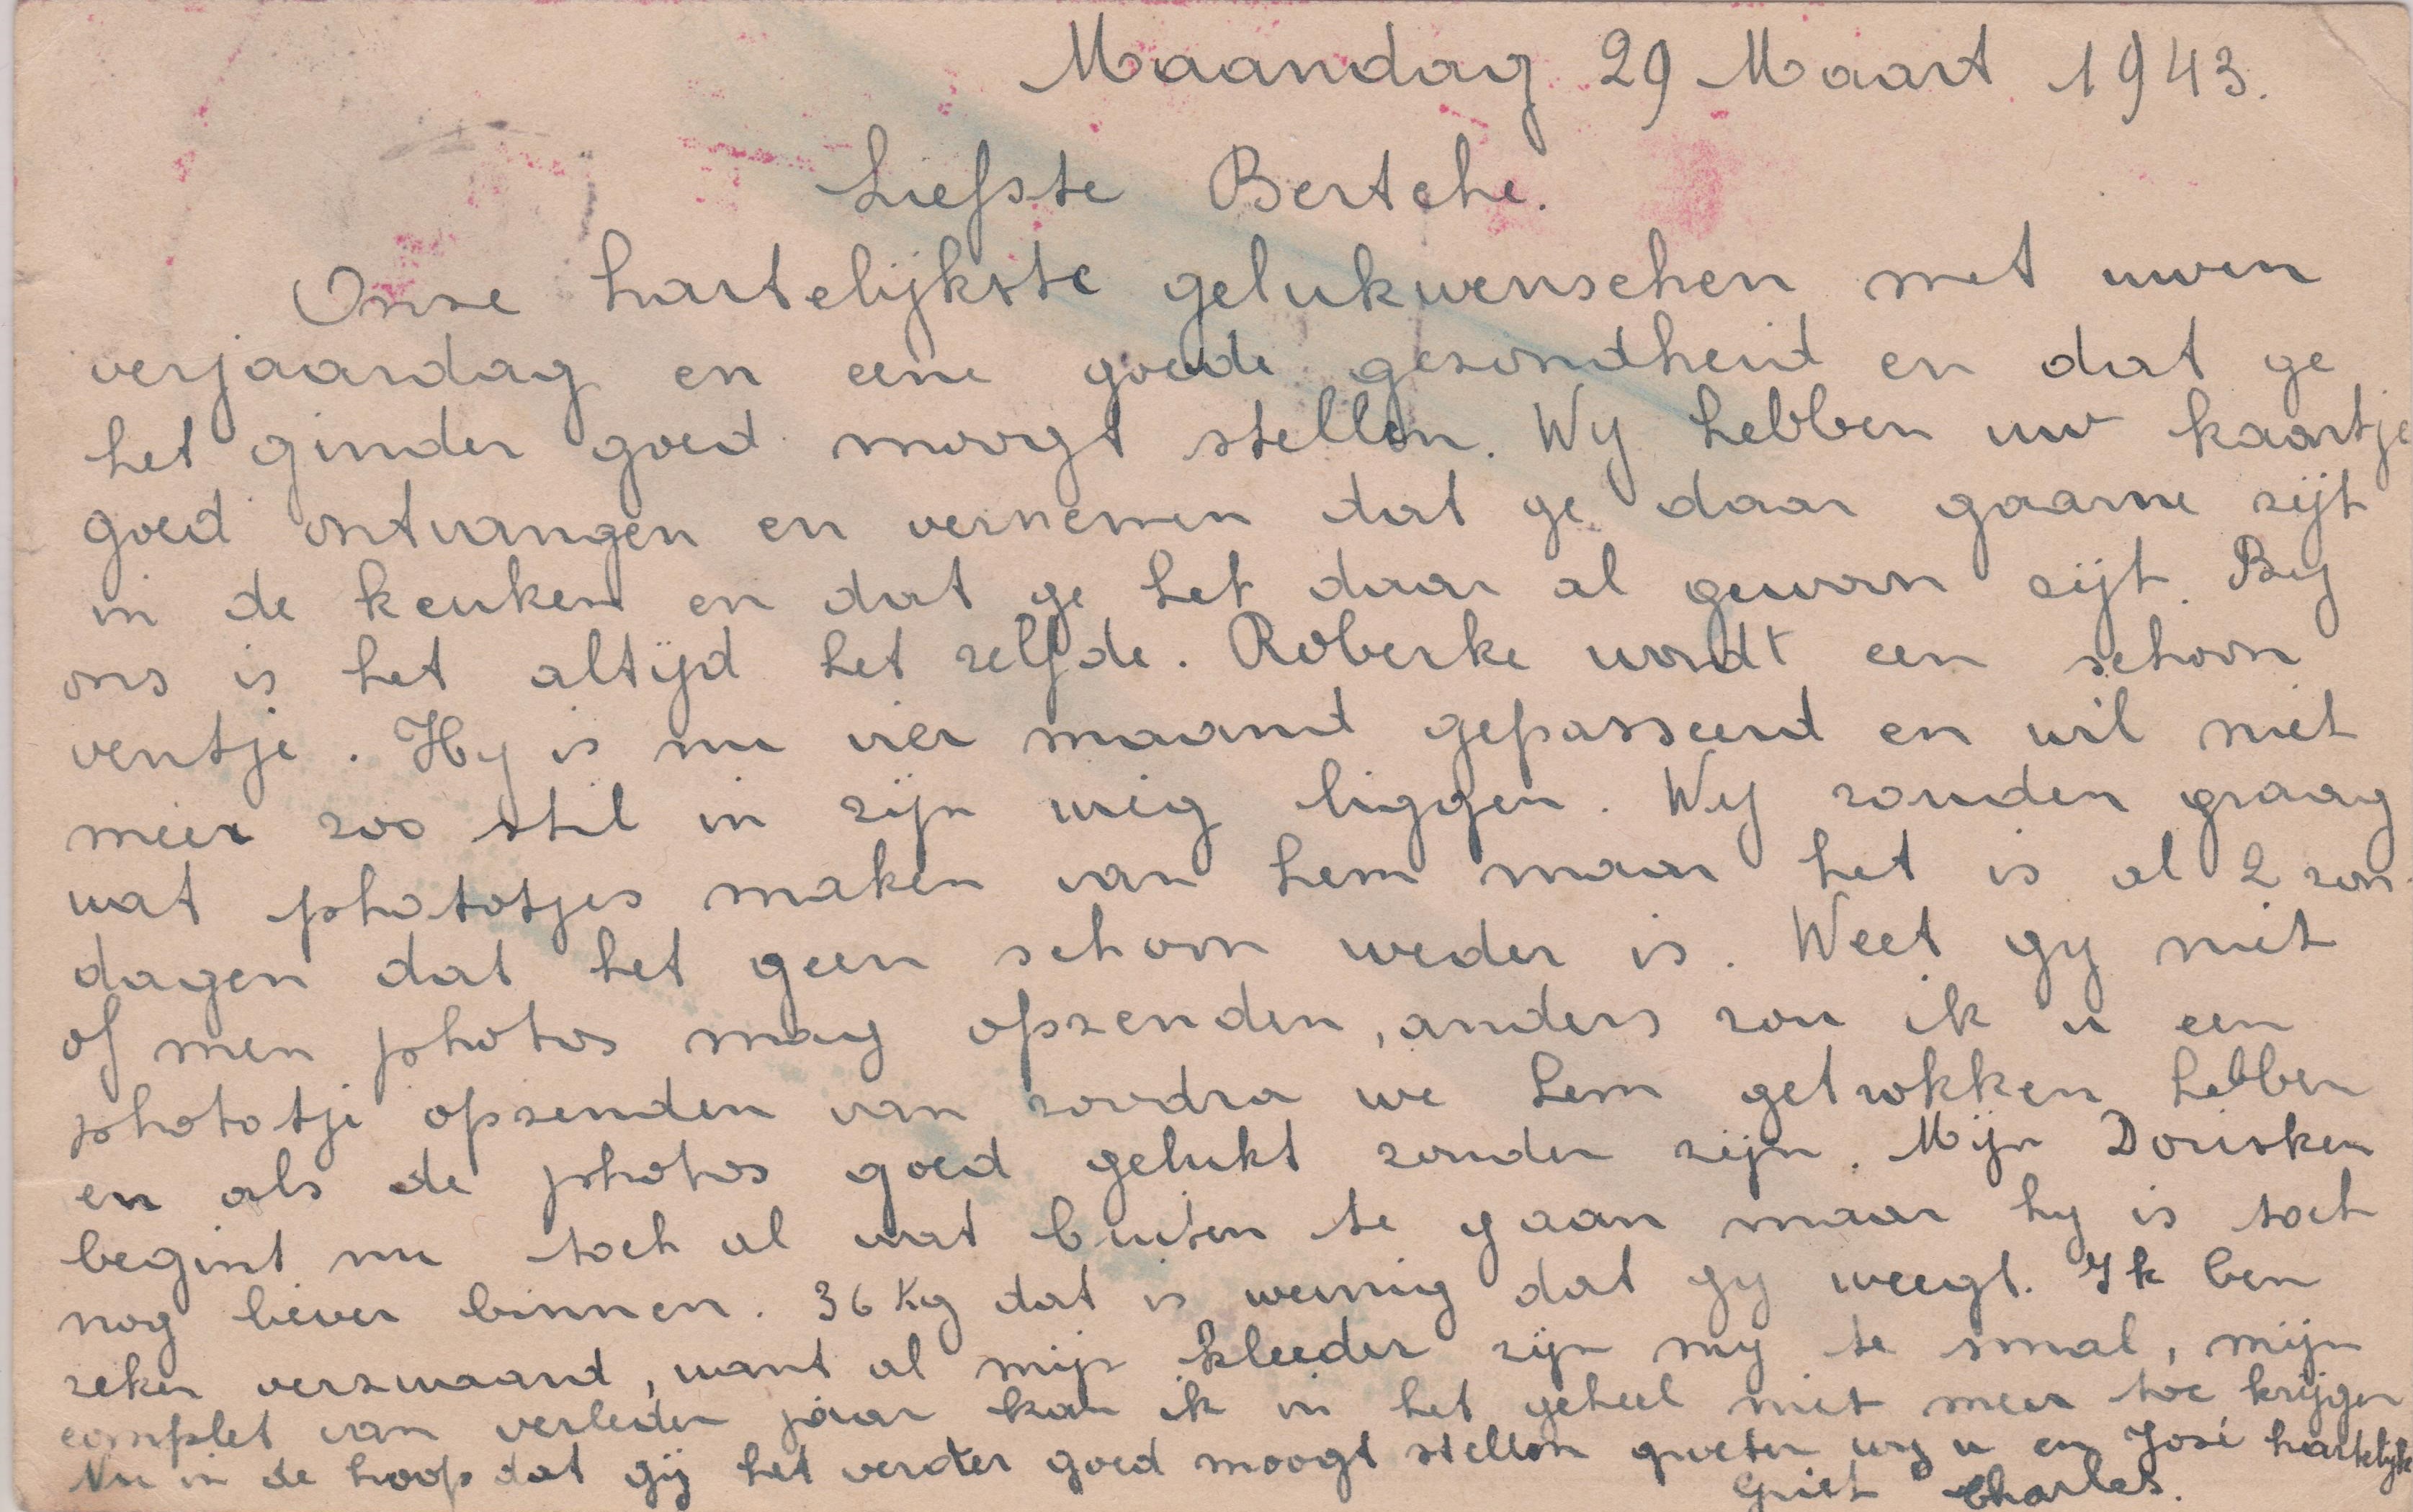 Maandag 29 Maart 1943.
Liefste Bertche.
Onze hartelijkste gelukwenschen met uwen
verjaardag en eene goede gezondheid en dat ge
het ginder goed moogt stellen. Wy hebben uw kaartje
goed ontvangen en vernemen dat ge daar gaarne zijt
in de keuken en dat ge het daar al gewoon zijt. By
ons is het altijd het zelfde. Roberke wordt een schoon
ventje. Hy is nu vier maand gepasseerd en wil niet
meer zoo stil in zijn wieg liggen. Wy zouden graag
wat phototjes maken van hem maar het is al 2 zon-
dagen dat het geen schoon weder is. Weet gy niet
of men photos mag opzenden, anders zou ik u een
phototje opzenden van zoodra we hem getrokken hebben
en als de photos goed gelukt zouden zijn. Mijn Dorisken
begint nu toch al wat buiten te gaan maar hy is toch
nog liever binnen. 36 Kg dat is weinig dat gy weegt. Ik ben
zeker verzwaard, want al mijn kleeder zijn my te smal, mijn
complet van verleden jaar kan ik in het geheel niet meer toe krijgen
Nu in de hoop dat gij het verder goed moogt stellen groeten wy u en José hartelijk
Griet Charles.